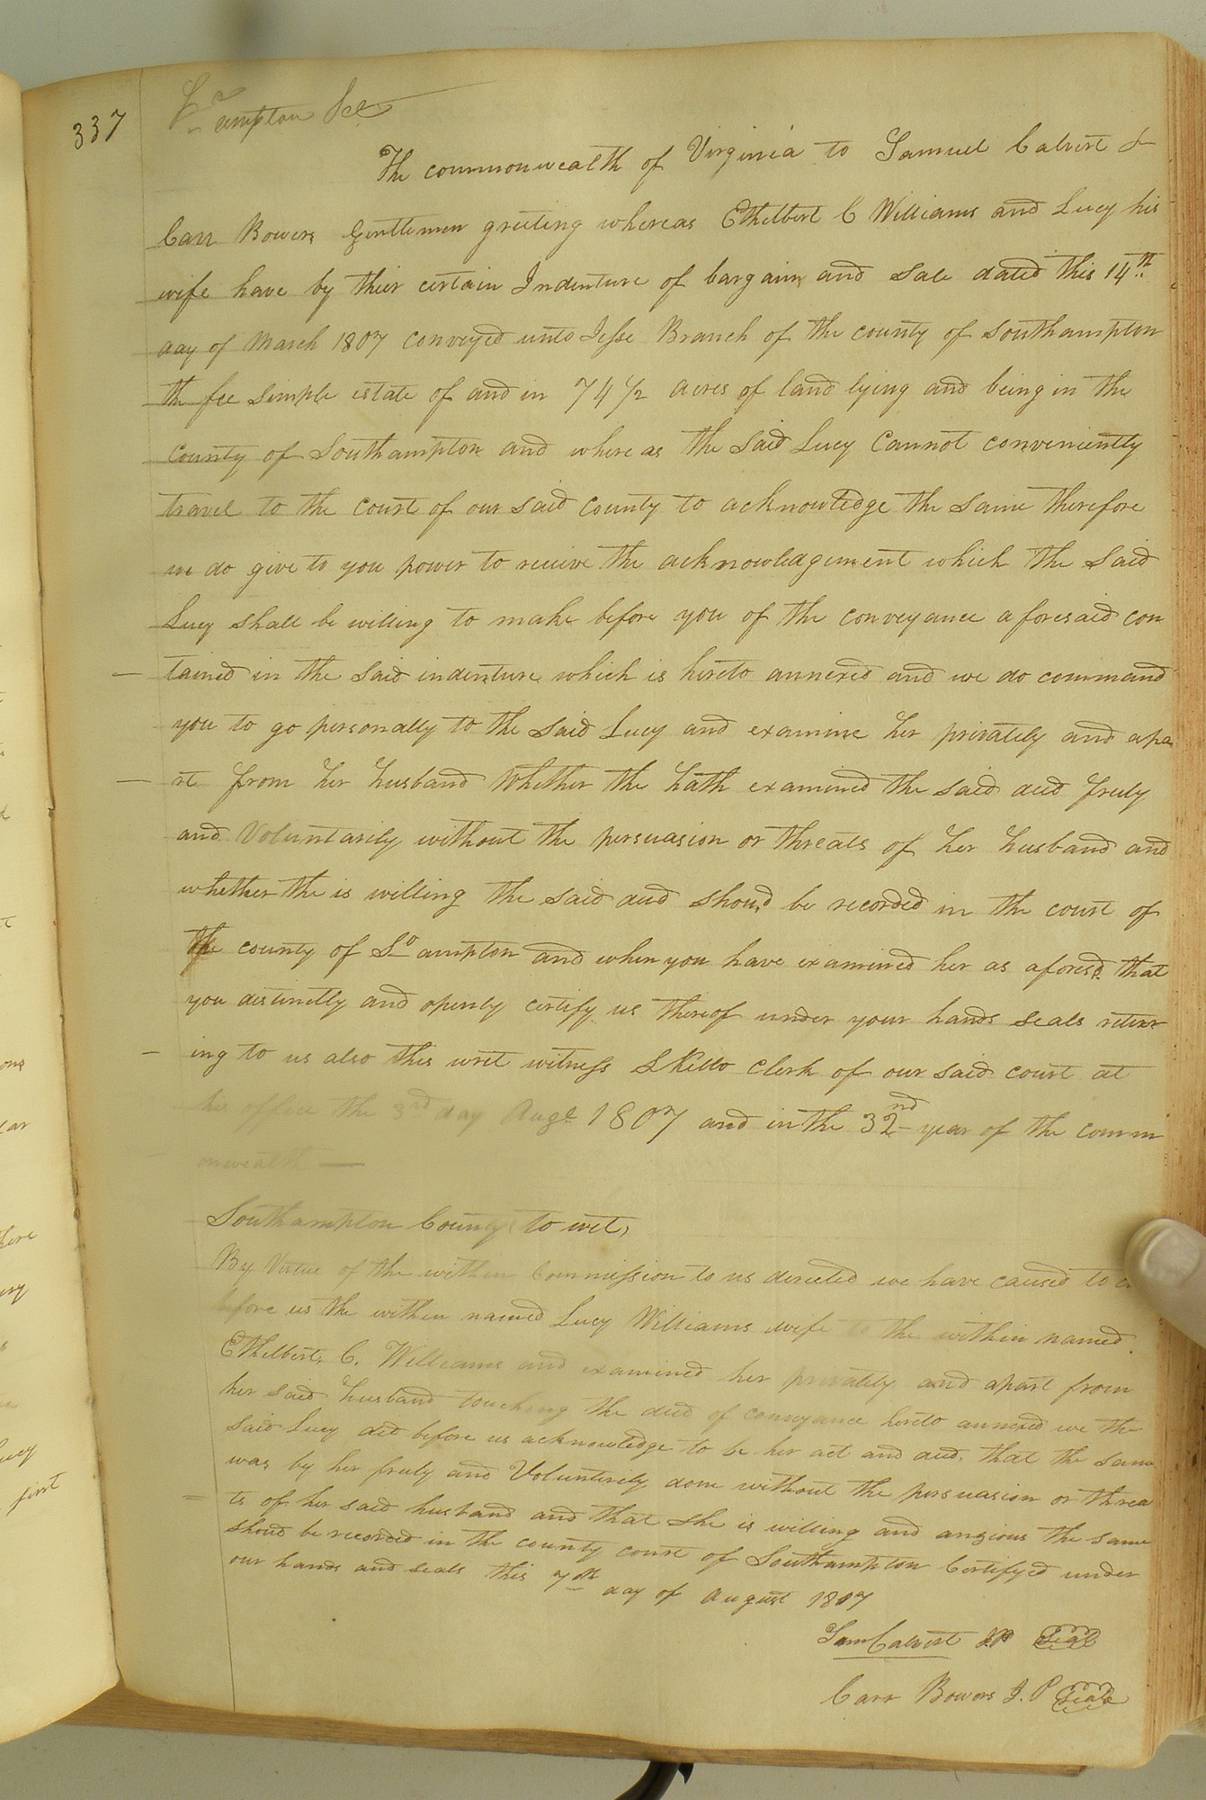 337
So ampton Sct
The commonwealth of Virginia to Samuel Calvert &
Carr Bowers Gentlemen greeting whereas Ethelbert C Williams and Lucy his
wife have by their certain Indenture of bargain and sale dated this 14th
day of March 1807 conveyed unto Jesse Branch of the county of Southampton
the fee simple estate of and in 74 1/2 acres of land lying and being in the
county of Southampton and where as the said Lucy cannot conveniently
travel to the court of our said county to acknowledge the same therefore
we do give to you power to receive the acknowledgement which the said
Lucy shall be willing to make before you of the conveyance aforesaid con
tained in the said indenture which is hereto annexed and we do command
you to go personally to the said Lucy and examine her privately and apa
rt from her husband whether the hath examined the said deed freely
and Voluntarily without the persuasion or threats of her husband and
whether the is willing the said deed shoud be recorded in the court of
the county of So ampton and when you have examined her as aforesd. that
you distinctly and openly certify us thereof under your hands seals return
ing to us also this writ witness S Kello clerk of our said court at
his office the 3rd day Augt 1807 and in the 32nd year of the comm
onwealth —
Southampton County to wit,
By Virtue of the within Commission to us directed we have caused to
before us the within named Lucy Williams wife to the within named
Ethelbert C. Williams and examined her privately and apart from
her said husband touching the deed of conveyance hereto annexed we the
said Lucy did before us acknowledge to be her act and deed, that the same
was by her freely and Volunterely done without the persuasion or threa
ts of her said husband and that she is willing and anxious the same
shoud be recorded in the county court of Southampton Certifyed under
our hands and seals this 7th day of August 1807
Sam Calvert JP Seal
Carr Bowers J. P Seal